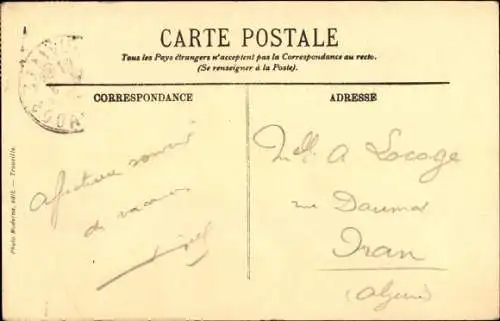 CARTE POSTALE
Tous les Pays étrangers n'acceptent pas la Correspondance au recto.
(Se renseigner à la Poste)
CORRESPONDANCE
ADRESSE
Photo Moderne, édit. — Trouville.
de vacances
A Locage
rue Daumas
Oran
(Algérie)